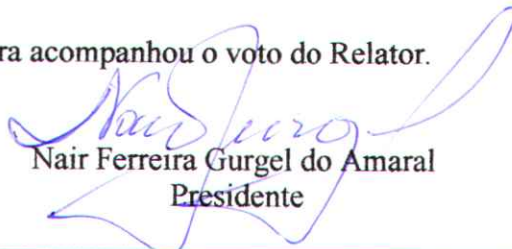 ra acompanhou o voto do Relator.
Nair Gurgel
Nair Ferreira Gurgel do Amaral
Presidente